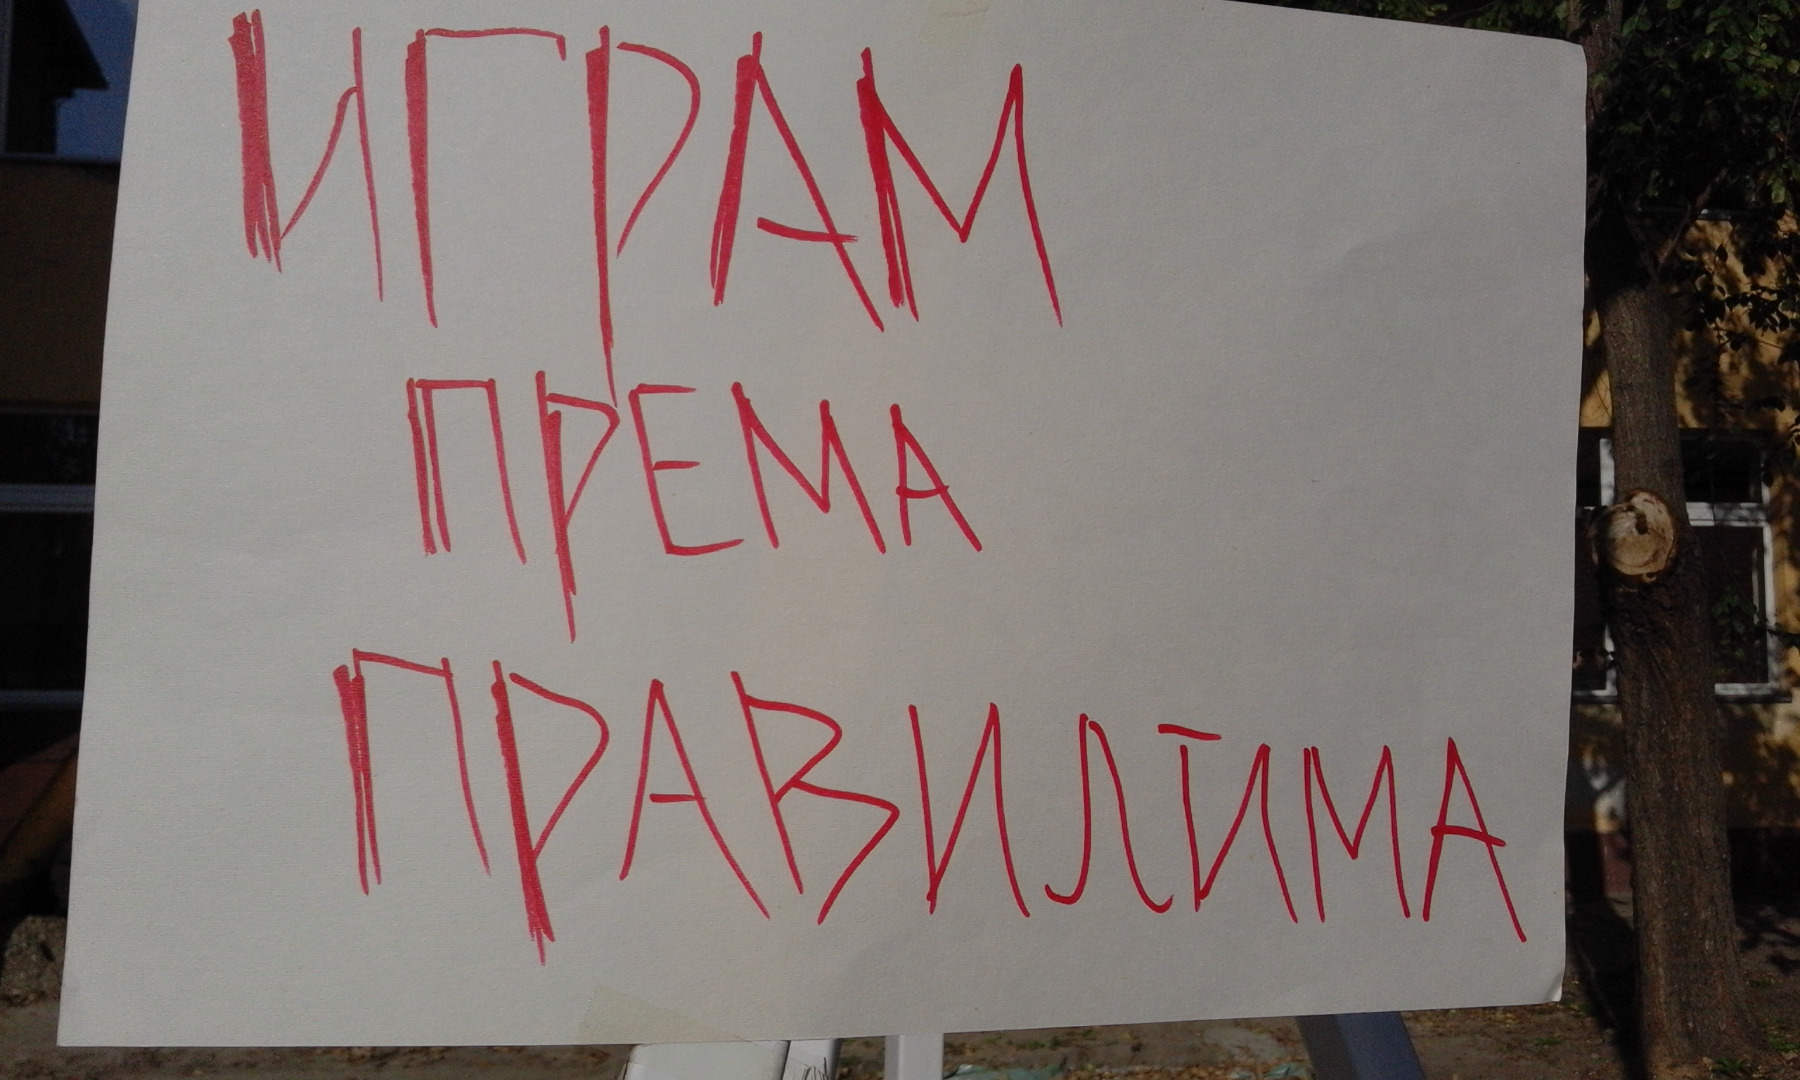 ИГРАМ
ПРЕМА
ПРАВИЛИМА